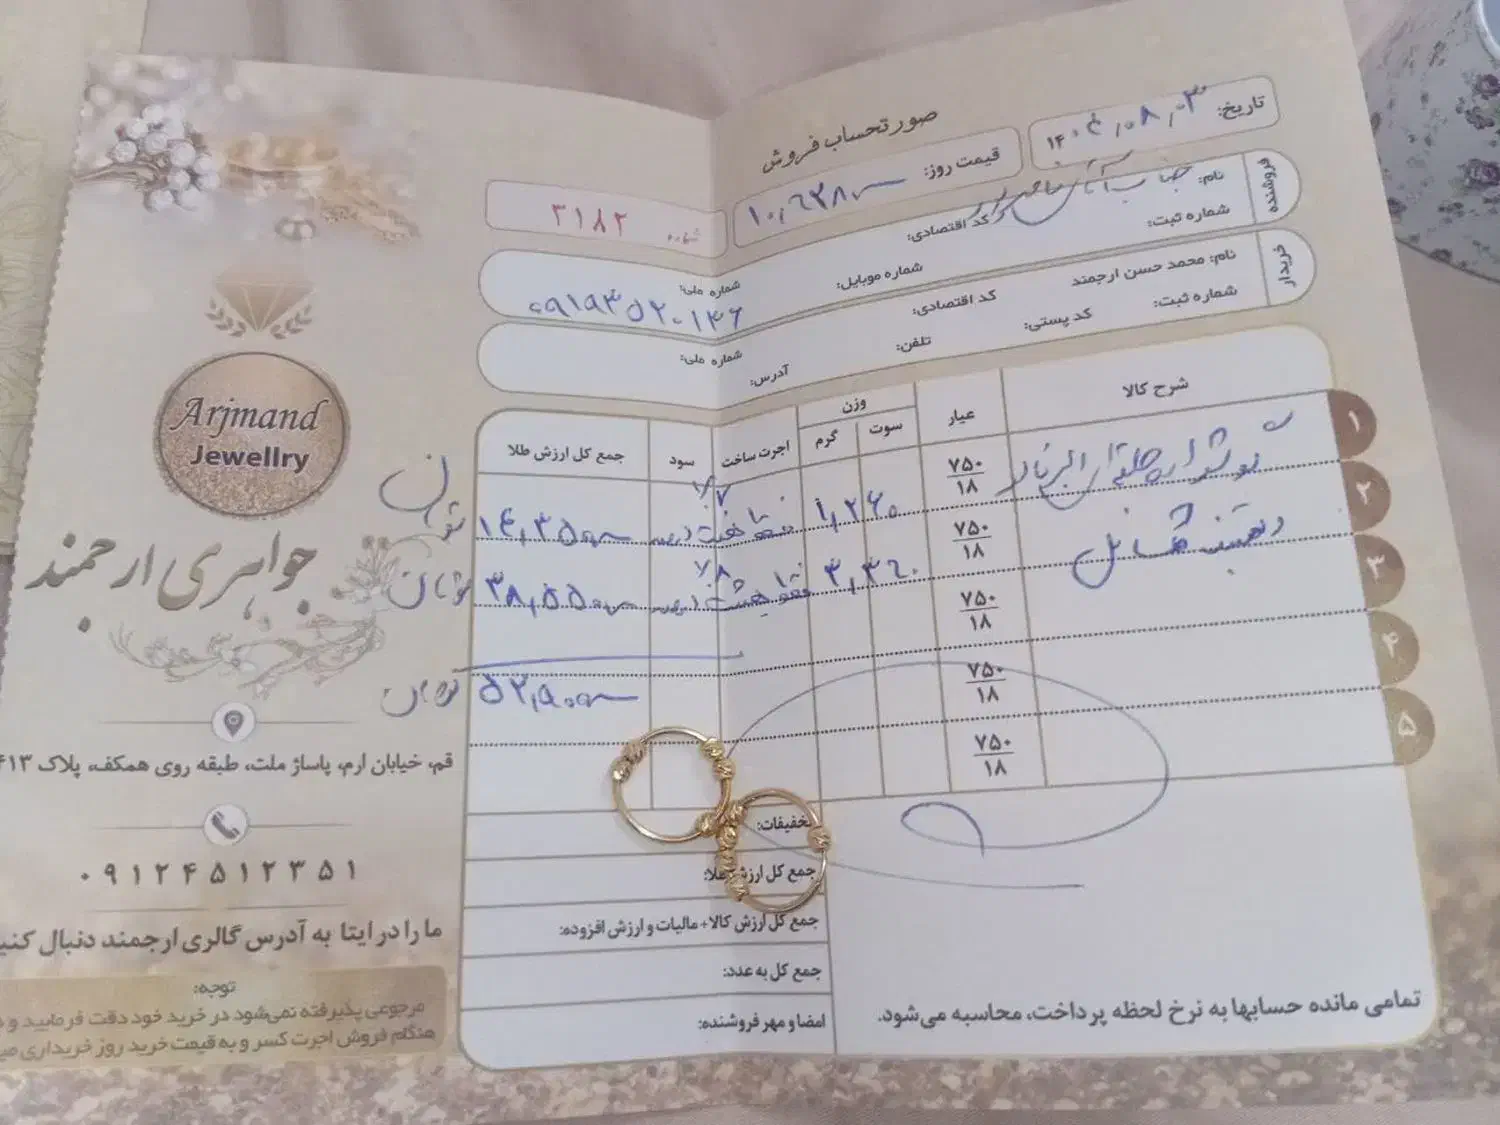 صورتحساب فروش
تاریخ: ۱۴۰۴,۰۸,۰۳
قیمت روز: ۱۰,۶۳۸۰۰۰
شماره ۳۱۸۲
فروشنده
نام: جناب آقای
شماره ثبت:
کد اقتصادی:
شماره موبایل:
شماره ملی:
۰۹۱۹۳۵۲۰۱۳۶
خریدار
نام: محمد حسن ارجمند
کد اقتصادی:
شماره ملی:
شماره ثبت:
کد پستی:
تلفن:
آدرس:
شرح کالا
عیار
وزن
سوت
گرم
اجرت ساخت
سود
جمع کل ارزش طلا
۱ گوشواره حلقه ای البرناد ۷۵۰/۱۸ ۱,۲۶۰ ٪۷ فقط هفت درصد ۱۴,۳۵۰۰۰۰ تومان
۲ دستبند ۷۵۰/۱۸ ۳,۳۶۰ ٪۸ فقط هشت درصد ۳۸,۵۵۰۰۰۰ تومان
۳ ۷۵۰/۱۸
۴ ۷۵۰/۱۸ ۵۲,۹۰۰۰۰۰ تومان
۵ ۷۵۰/۱۸
تخفیفات:
جمع کل ارزش طلا:
جمع کل ارزش کالا + مالیات و ارزش افزوده:
جمع کل به عدد:
امضا و مهر فروشنده:
تمامی مانده حسابها به نرخ لحظه پرداخت، محاسبه می‌شود.
Arjmand
Jewellry
جواهری ارجمند
قم، خیابان ارم، پاساژ ملت، طبقه روی همکف، پلاک ۴۱۳
۰۹۱۲۴۵۱۲۳۵۱
ما را در ایتا به آدرس گالری ارجمند دنبال کنید
توجه:
مرجوعی پذیرفته نمی‌شود در خرید خود دقت فرمایید و د
هنگام فروش اجرت کسر و به قیمت خرید روز خریداری می